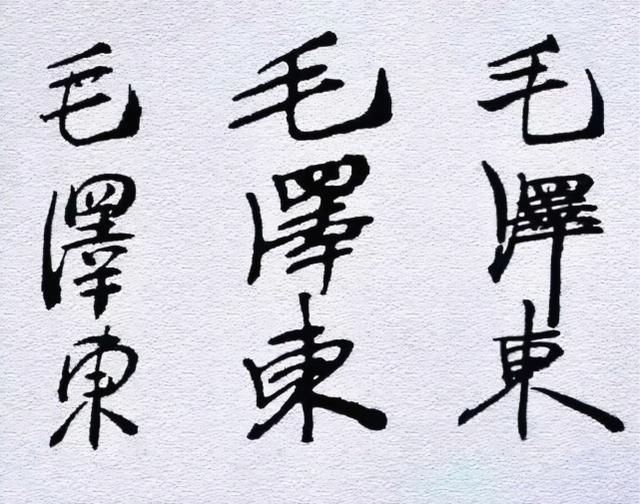 毛澤東
毛澤東
毛澤東